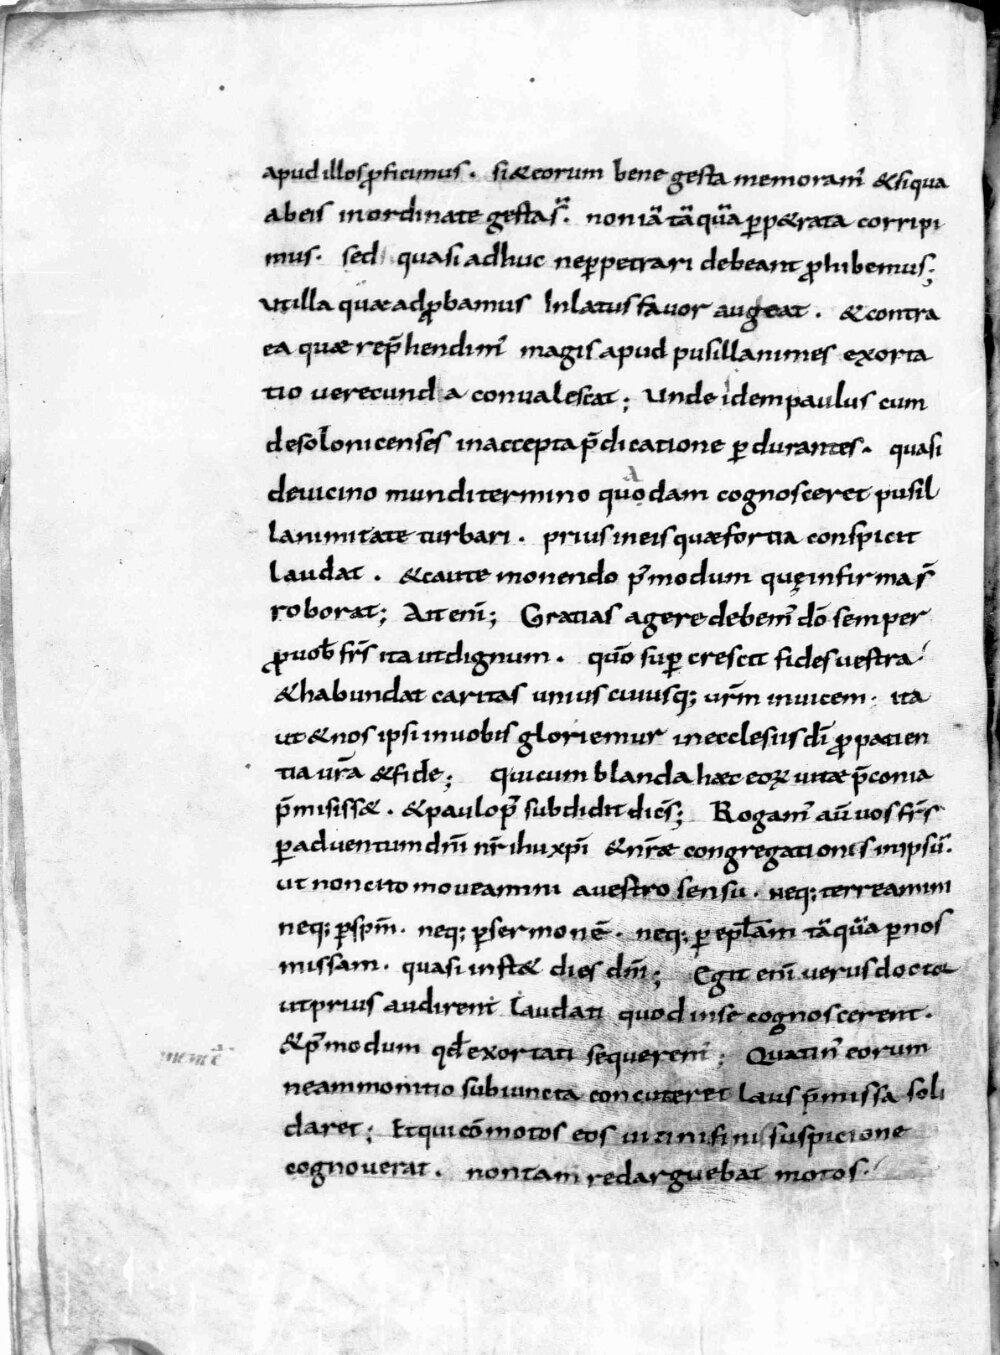 apud illos ꝓficimus. si & eorum bene gesta memoram᾽ & siqua
ab eis inordinate gesta s̅t̅. non iā tā quā ꝑp&rata corripi
mus. sed quasi adhuc ne ꝑpetrari debeant ꝓhibemus;
Ut illa quæ adꝓbamus Inlatus favor augeat. & contra
ea quæ rep̄hendim᾽ magis apud pusillanimes exorta
tio verecunda convalescat; Unde idem paulus cum
desolonicenses in accepta p̄dicatione ꝑdurantes. quasi
de vicino mundi termino quodam cognosceret pusil
lanimitate turbari. prius in eis quæ fortia conspicit
laudat. & caute monendo p᾽modum quę infirma s̄
roborat; Ait eni̅; Gratias agere debem᾽ dō semper
ꝓ vob̄ fr̄s ita ut dignum. quō suꝑ crescit fides vestra
& habundat caritas unius cuiusq; vr̄m invicem. ita
ut & nos ipsi in vobis gloriemur in ecclesiis dī ꝓ patien
tia vr̄a & fide; Qui cum blanda hæc eoꝝ vitæ p̄conia
p̄misiss&. & paulo p᾽ subdidit dicēs; Rogam᾽ aū vos fr̄s
ꝑ adventum dn̄i nr̄i ihu xp̄i & nr̄æ congregationis in ipsū.
ut non cito moveamini a vestro sensu. neq; terreamini
neq; ꝑ sp̄m. neq; ꝑ sermonē. neq; ꝑ epl̄am tā quā ꝑ nos
missam. quasi inst& dies dn̄i; Egit eni̅ verus doctor
ut prius audirent laudati quod in se cognoscerent.
& p᾽modum qd̄ exortati sequerent᾽; Quatin᾽ eorum
ne ammonitio subiuncta concuteret laus p̄missa soli
daret; Et qui cōmotos eos vicini finis suspicione
cognoverat. non tam redarguebat motos.